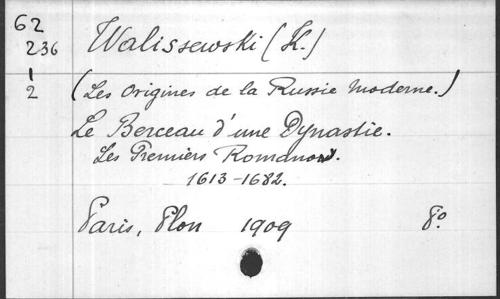 62
236
1
2
Walissewski (K.)
(Les Origines de la Russie Moderne.)
Le Berceau d'une Dynastie.
Les Premiers Romanows.
1613-1682.
Paris, Plon 1909 8°